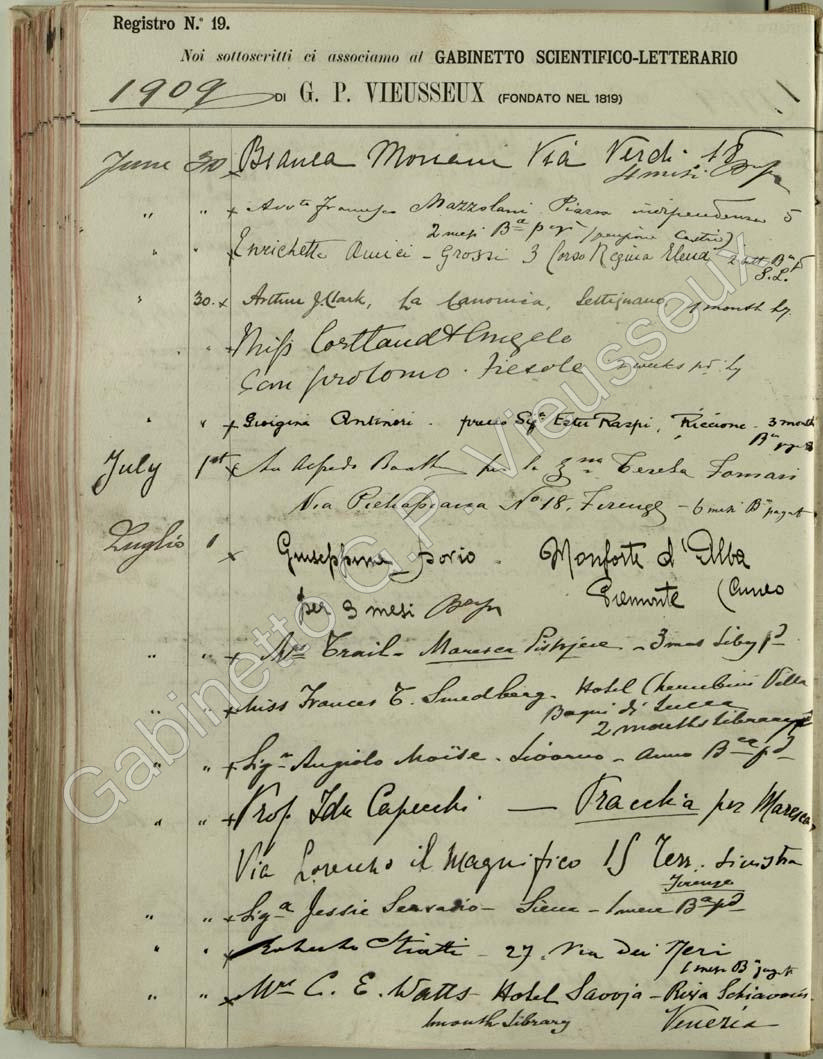 Registro N.º 19.
Noi sottoscritti ci associamo al GABINETTO SCIENTIFICO-LETTERARIO
1909 DI G. P. VIEUSSEUX (FONDATO NEL 1819)
June 30 x Bianca Via Verdi 18
4 mesi
" " x Avvto Francesco Mazzolani Piazza indipendenza 5
2 mesi Ba (pensione Castri)
" " Enrichetta Amici - Grossi 3 Corso Regina Elena
S. L.
" 30. x Arthur J. Clark, La Canonica, Settignano, 1 month
" x Miss Cortlandt
San Girolomo. Fiesole 2 weeks pd.
" " x Giorgina Antinori. presso Sigra Ester Raspi, Riccione. 3 month
July 1st x Alfredo per la Teresa Tomasi
Via Pietrapiana No 18, Firenze - 6 mesi
Luglio 1 x Giuseppina Monforte d'Alba
per 3 mesi Piemonte (Cuneo
" " x Mrs Trail - Maresca Pistojese - 3 mos Liby pd
" " x Miss Frances T. Smedberg. Hotel Cherubini Villa
Bagni di Lucca
2 months Library
" " x Sigr Angiolo Moïse - Livorno - Anno Bca pd
" " x Prof. Ida Capecchi — Pracchia per Maresca,
Via Lorenzo il Magnifico 15 Terr. sinistra
Firenze
" " x Siga Jessie Servadio - Siena - 1 mese Ba pd
" " x Roberto - 27, Via Dei Neri
1 mese
" " x Mrs C. E. Watts - Hotel Savoja - Riva Schiavoni
1 month Library Venezia
Gabinetto G. P. Vieusseux